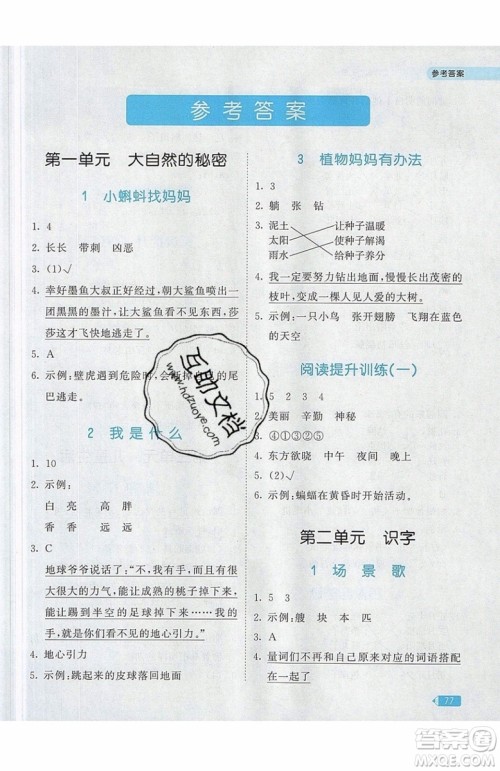 参考答案
参考答案
第一单元 大自然的秘密
1 小蝌蚪找妈妈
1. 4
2. 长长 带刺 凶恶
3. (1)√
4. 幸好墨鱼大叔正好经过，朝大鲨鱼喷出一
团黑黑的墨汁，让大鲨鱼看不见东西，莎
莎这才飞快地逃走了。
5. A
6. 示例：壁虎遇到危险时，会断掉自己的尾
巴逃走。
2 我是什么
1. 10
2. 示例：
白 亮 高 胖
香 香 远 厚
3. C
地球爷爷说话了：“不，我有手，而且有很
大很大的力气，能让树上的桃子掉下来，
能让踢到半空的足球掉下来……不过你
们看不见我的手，我的手就是地心引力。”
4. 地心引力
5. 示例：跳起来的皮球落回地面
3 植物妈妈有办法
1. 3
2. 躺 张 钻
3. 泥土 让种子温暖
太阳 使种子解渴
雨水 给种子养分
4. 我一定要努力钻出地面，慢慢长出茂密的
枝叶，变成一棵人见人爱的大树。
5. 示例：一只小鸟 张开翅膀 飞翔在蓝色
的天空
阅读提升训练(一)
1. 5 2 3 4
2. 美丽 辛勤 神秘
3. ④①③②⑤
4. 东方欲晓 中午 夜间 晚上
5. (2)√
6. 示例：蝙蝠在黄昏时开始活动。
第二单元 识字
1 场景歌
1. 5 3
2. 示例：艘 块 本 匹
3. A
4. 量词们不再和自己原来搭配的词语搭配
在一起了
77
互助文档
www.hdzuoye.com
答案圈
MXQE.COM